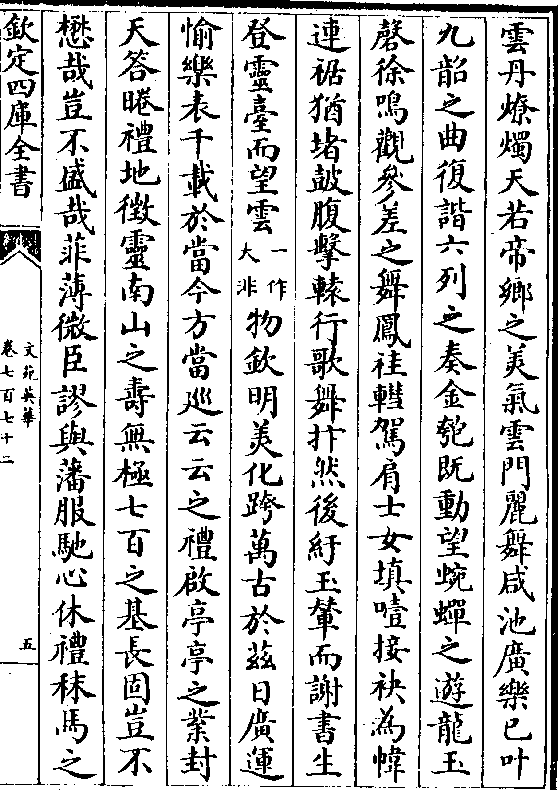 雲丹燎燭天若帝鄉之美氣雲門麗舞咸池廣樂已叶
九韶之曲復諧六列之奏金匏既動望蜿蟬之遊龍玉
磬徐鳴觀參差之舞鳳袿轊駕肩士女填噎接袂為幃
連裾猶堵鼓腹擊轅行歌舞抃然後紆玉輦而謝書生
登靈臺而望雲一作大非物欽明美化跨萬古於兹日廣運
愉樂表千載於當今方當廵云云之禮啟亭亭之業封
天答睠禮地徴靈南山之壽無極七百之基長固豈不
懋哉豈不盛哉菲薄微臣謬與藩服馳心休禮秣馬之
欽定四庫全書
文苑英華
卷七百七十二
五